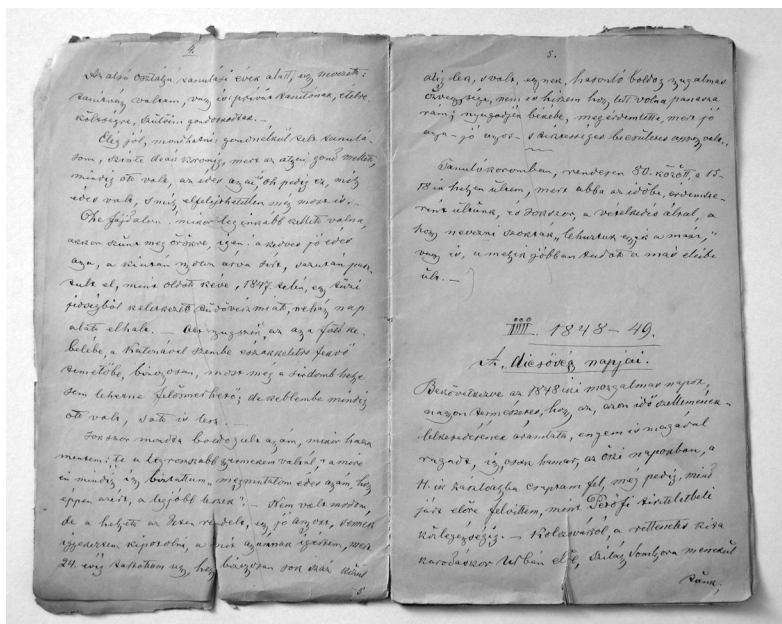 4.
Az alsó osztályú tanulási évek alatt, úgy nevezett:
tanítvány voltam, vagy is privát tanítónak, életre
költségre, szülőim gondoskodtak. —
Elég jól, mondhatni gondnélkül telt tanulá-
som, szinte deák koromig, mert az atyai gond mellett,
mindig ott volt, az édes anyai is
édes volt, s mily elfelejthetetlen még most is. —
Oh fájdalom! mikor leginkább kellett volna,
akkor szünt meg örökre, igen: a kedves jó édes
apa, a kiután nyolcz árva sírt, azután pusz-
tult el, ment oldott kéve, 1847. telén, egy
keletkezett tüdővész miatt, néhány nap
alatt elhalt. —
belébe, a Katonával szembe északkeletre fekvő
temetőbe, bizonyosan, most még a sírdomb helye
sem lehetne felösmerhető; de keblembe mindig
ott volt, s ott is lesz. —
Sokszor mondta boldogult apám, mikor haza
mentem: te a legrosszabb gyermekem voltál, a mire
én mindig úgy biztattam megmutatom édes apám, hogy
éppen azért, a legjobb leszek". — Nem volt módom,
de a helyett az Isten rendelt, egy jó anyóst, s ennek
igyekeztem kipótolni, a mit apámnak igértem, mert
24. évig tartottam úgy, hogy bizonyosan sok száz közül
5.
5.
alig lesz, s volt, egynek, hasonló boldog nyugalmas
özvegysége, nem is hiszem hogy lett volna, panasza
rám; nyugodjon békébe, megérdemlette, mert jó
anya – jó anyós – s tisztességes becsületes asszony volt.
Tanulókoromban, rendesen 80. között, a 15-
18ik helyen ültem, mert abba az időbe, érdemsze-
rint ültünk, s sokszor, a vetélkedés által, a
hogy nevezni szoktak, "lehuztuk egyik a mást,"
vagy is, a melyik jobban tudott a más elébe
ült. —
III. 1848–49.
A, dicsőség napjai.
Bekövetkezve az 1848iki mozgalmas napok,
nagyon természetes, hogy az, azon idő szellemének –
lelkesedésének áradata, engem is magával
ragadt, így csak hamar, az őszi napokban, a
11.ik zászlóaljba csaptam fel, még pedig, mind
járt előre felvittem, mint Petőfi tiszteletbeli
közlegénységig. – Kolozsvárról, a rettenetes kicsa
karodáskor Urbán elől, Szilágy Somlyóra menekül
tünk,